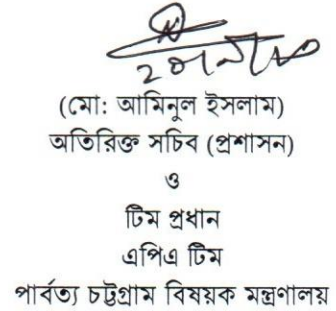 (মো: আমিনুল ইসলাম)
অতিরিক্ত সচিব (প্রশাসন)
ও
টিম প্রধান
এপিএ টিম
পার্বত্য চট্টগ্রাম বিষয়ক মন্ত্রণালয়